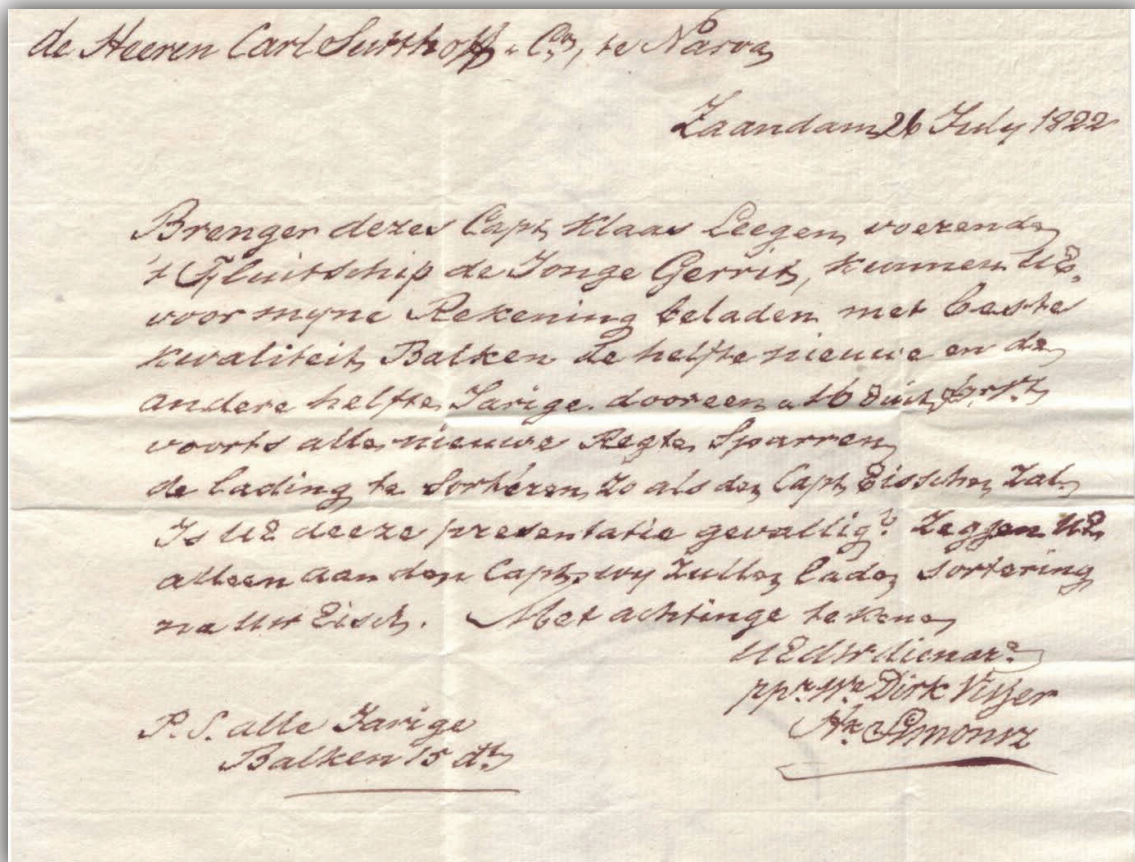 de Heeren Carl Sutthoff & Co, te Narva
Zaandam 26 July 1822
Brenger dezes Capt Klaas Leegen voerende
't Fluitschip de Jonge Gerrit, kunnen UE.
voor myne Rekening beladen met beste
kwaliteit Balken de helfte nieuwe en de
andere helfte Jarige. dooreen a 16 duit
voorts alle nieuwe Regte Sparren
de lading te Sortéren zo als den Capt Eisschen Zal
Is UE deeze presentatie gevallig? Zeggen UE
alleen aan den Capt, wy Zullen laden sortering
na uw Eisch. Met achtinge tekene
UEdW dienar
ppr Dirk Visser
Simonsz
P.S. alle Jarige
Balken 15 dt